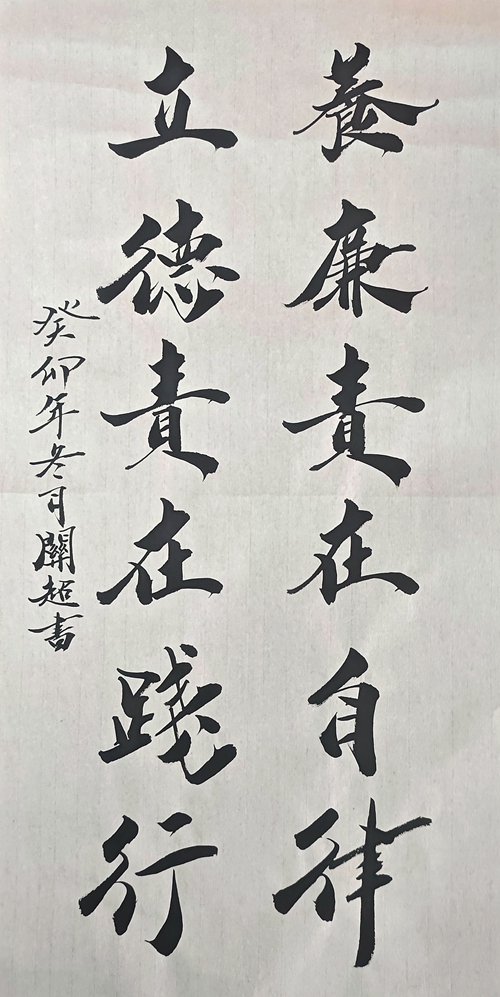 養廉責在自律
立德責在踐行
癸卯年冬月關超書